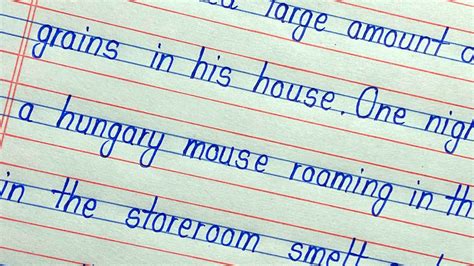 large amount
grains in his house. One nigh
a hungary mouse roaming in th
in the storeroom smelt